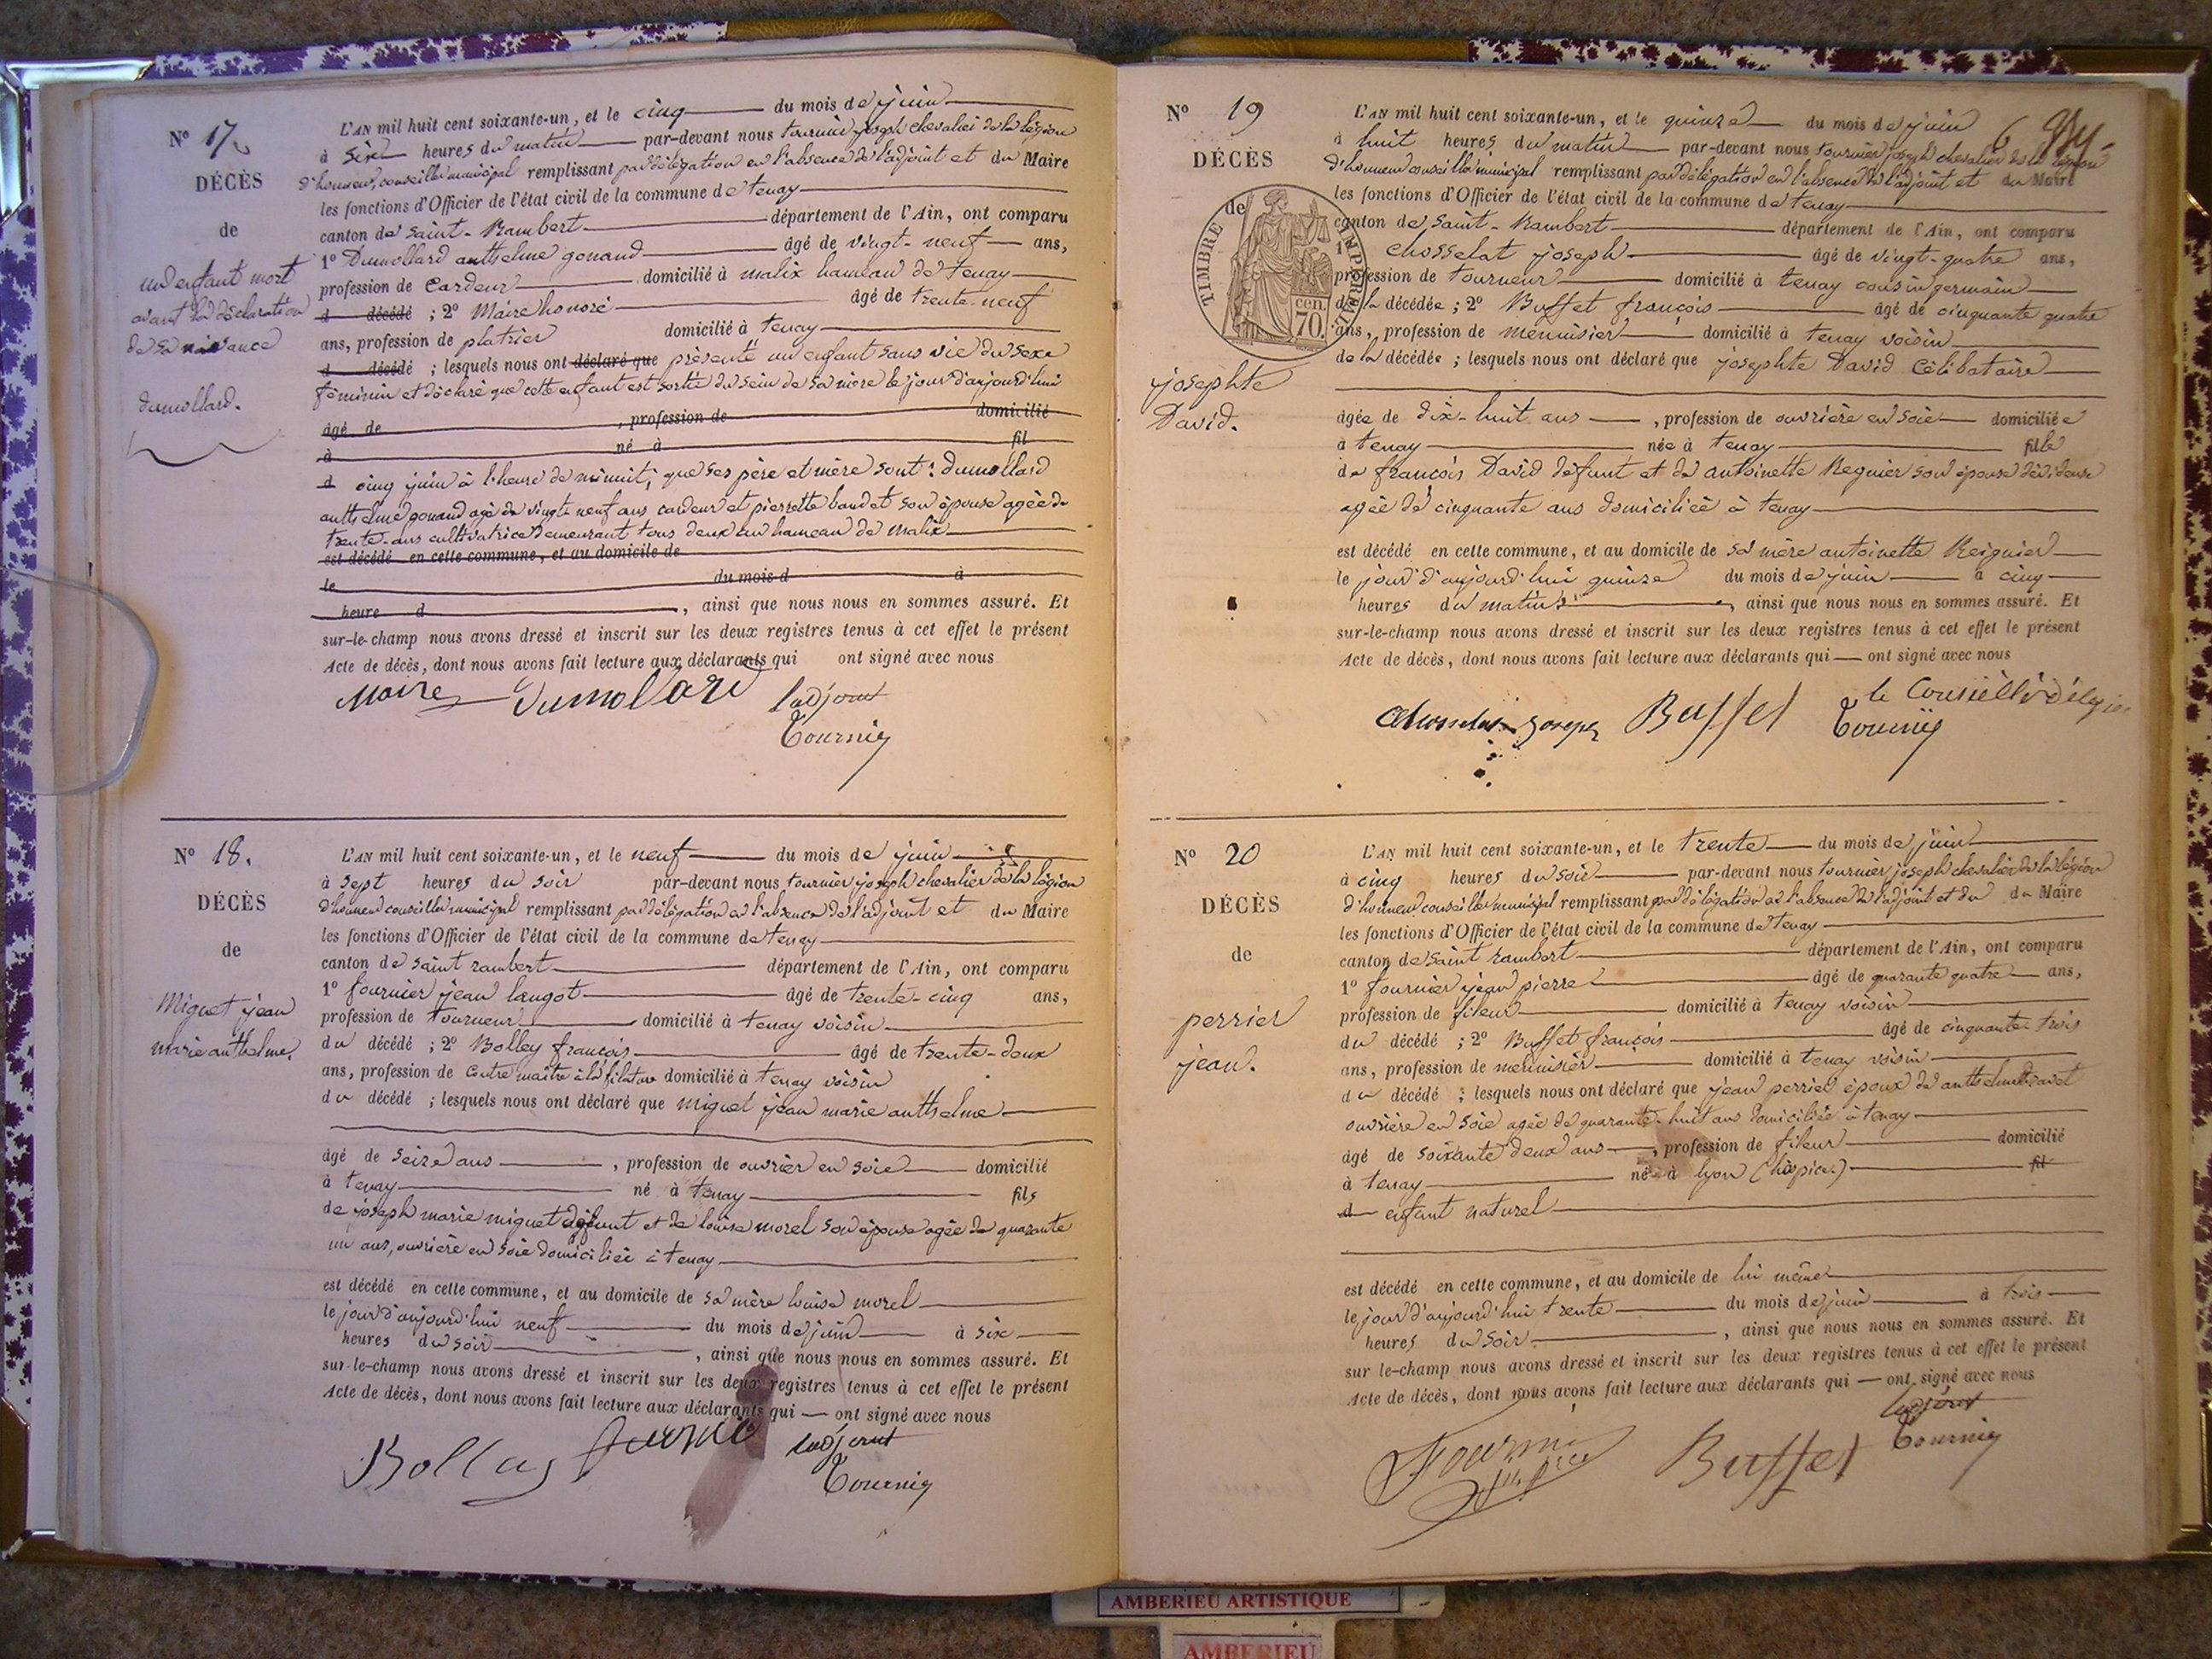 N° 17.
DÉCÈS
de
un enfant mort
avant la déclaration
de sa naissance
dumollard.
L'AN mil huit cent soixante-un, et le cinq du mois de juin
à six heures du matin par-devant nous tournier joseph chevalier de la légion
d'honneur, conseiller municipal remplissant par délégation en l'absence de l'adjoint et du Maire
les fonctions d'Officier de l'état civil de la commune de tenay
canton de saint-Rambert département de l'Ain, ont comparu
1° Dumollard anthelme gonand âgé de vingt-neuf ans,
profession de Cardeur domicilié à malix hameau de tenay
d décédé ; 2° Maire honoré âgé de trente-neuf
ans, profession de platrier domicilié à tenay
d décédé ; lesquels nous ont déclaré que présenté un enfant sans vie du sexe
féminin et déclaré que cette enfant est sortie du sein de sa mère le jour d'aujourd'hui
âgé de , profession de domicilié
à né à fil
d cinq juin à l'heure de minuit, que ses père et mère sont : dumollard
anthelme gonand agé de vingt neuf ans cardeur et pierrette baudet son épouse agée de
trente-ans cultivatrice demeurant tous deux au hameau de malix
est décédé en cette commune, et au domicile de
le du mois d à
heure d , ainsi que nous nous en sommes assuré. Et
sur-le-champ nous avons dressé et inscrit sur les deux registres tenus à cet effet le présent
Acte de décès, dont nous avons fait lecture aux déclarants qui ont signé avec nous
Maire Dumollard l'adjoint
Tournier
N° 18.
DÉCÈS
de
Miguet jean
marie anthelme.
L'AN mil huit cent soixante-un, et le neuf du mois de juin
à sept heures du soir par-devant nous tournier joseph chevalier de la légion
d'honneur conseiller municipal remplissant par délégation en l'absence de l'adjoint et du Maire
les fonctions d'Officier de l'état civil de la commune de tenay
canton de saint rambert département de l'Ain, ont comparu
1° fournier jean langot âgé de trente-cinq ans,
profession de tourneur domicilié à tenay voisin
du décédé ; 2° Bolley françois âgé de trente-deux
ans, profession de contre maitre à la filature domicilié à tenay voisin
du décédé ; lesquels nous ont déclaré que miguet jean marie anthelme
âgé de seize ans , profession de ouvrier en soie domicilié
à tenay né à tenay fils
de joseph marie miguet défunt et de louise morel son épouse agée de quarante
un ans, ouvrière en soie domiciliée à tenay
est décédé en cette commune, et au domicile de sa mère louise morel
le jour d'aujourd'hui neuf du mois de juin à six
heures du soir , ainsi que nous nous en sommes assuré. Et
sur-le-champ nous avons dressé et inscrit sur les deux registres tenus à cet effet le présent
Acte de décès, dont nous avons fait lecture aux déclarants qui ont signé avec nous
Bolley fournier ladjoint
Tournier
N° 19
DÉCÈS
de
TIMBRE IMPÉRIAL
cen.
70.
josephte
David.
L'AN mil huit cent soixante-un, et le quinze du mois de juin 6
à huit heures du matin par-devant nous tournier joseph chevalier de la légion
d'honneur conseiller municipal remplissant par délégation en l'absence de l'adjoint et du Maire
les fonctions d'Officier de l'état civil de la commune de tenay
canton de saint-Rambert département de l'Ain, ont comparu
1° chosselat joseph âgé de vingt-quatre ans,
profession de tourneur domicilié à tenay cousin germain
de la décédée ; 2° Buffet françois âgé de cinquante quatre
ans, profession de menuisier domicilié à tenay voisin
de la décédée ; lesquels nous ont déclaré que josephte David célibataire
âgée de dix-huit ans , profession de ouvrière en soie domiciliée
à tenay née à tenay fille
de françois David défunt et de antoinette Regnier son épouse dévideuse
agée de cinquante ans domiciliée à tenay
est décédé en cette commune, et au domicile de sa mère antoinette Reignier
le jour d'aujourd'hui quinze du mois de juin à cinq
heures du matin , ainsi que nous nous en sommes assuré. Et
sur-le-champ nous avons dressé et inscrit sur les deux registres tenus à cet effet le présent
Acte de décès, dont nous avons fait lecture aux déclarants qui ont signé avec nous
Chosselat Joseph Buffet le Conseillé
Tournier
N° 20
DÉCÈS
de
perrier
jean.
L'AN mil huit cent soixante-un, et le trente du mois de juin
à cinq heures du soir par-devant nous tournier joseph chevalier de la légion
d'honneur conseiller municipal remplissant par délégation en l'absence de l'adjoint et du du Maire
les fonctions d'Officier de l'état civil de la commune de tenay
canton de saint rambert département de l'Ain, ont comparu
1° fournier jean pierre âgé de quarante quatre ans,
profession de fileur domicilié à tenay voisin
du décédé ; 2° Buffet françois âgé de cinquante trois
ans, profession de menuisier domicilié à tenay voisin
du décédé ; lesquels nous ont déclaré que jean perrier époux de anthelmette
ouvrière en soie agée de quarante-huit ans domiciliée à tenay
âgé de soixante deux ans , profession de fileur domicilié
à tenay né à lyon (hospice) fil
d enfant naturel
est décédé en cette commune, et au domicile de lui même
le jour d'aujourd'hui trente du mois de juin à trois
heures du soir , ainsi que nous nous en sommes assuré. Et
sur le-champ nous avons dressé et inscrit sur les deux registres tenus à cet effet le présent
Acte de décès, dont nous avons fait lecture aux déclarants qui ont signé avec nous
Fournier Buffet ladjoint
Tournier
AMBERIEU ARTISTIQUE
AMBERIEU